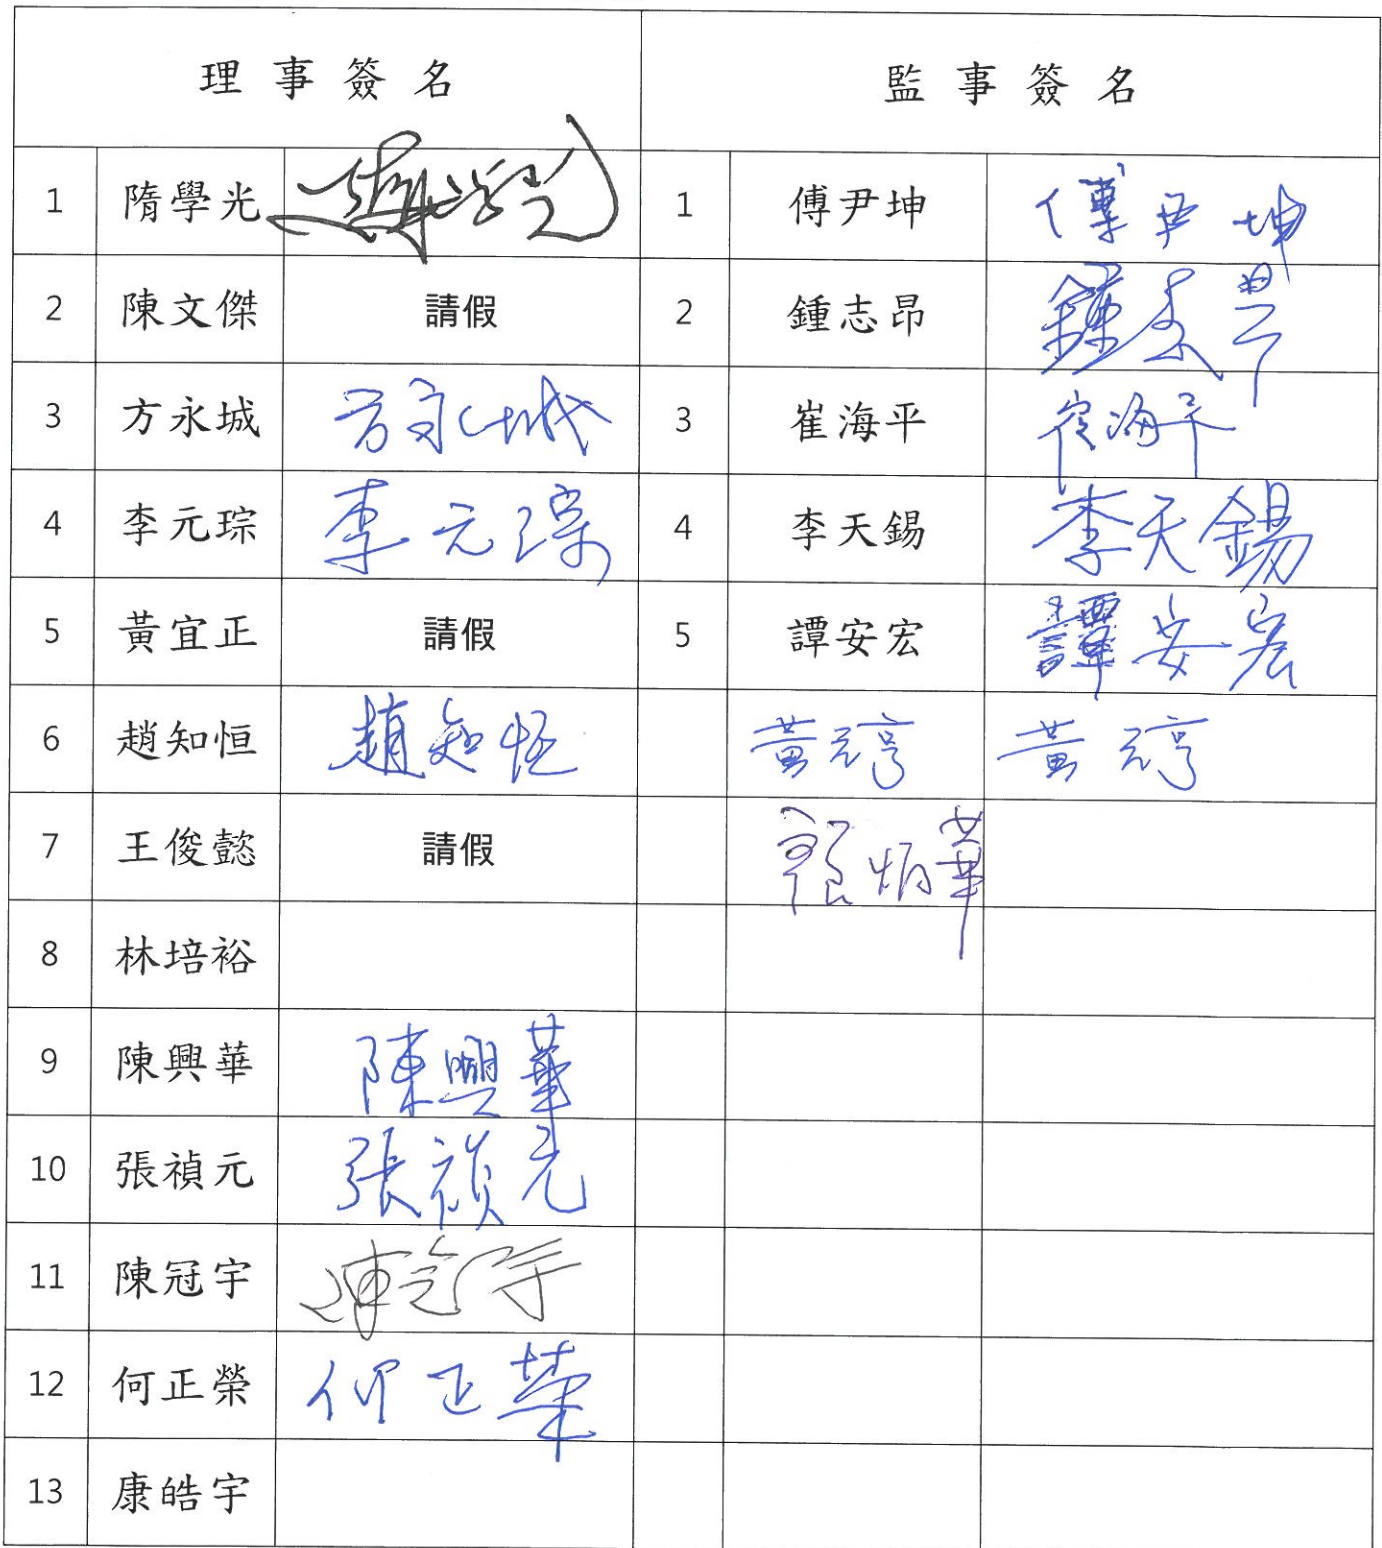 理事簽名 監事簽名
1 隋學光 隋學光 1 傅尹坤 傅尹坤
2 陳文傑 請假 2 鍾志昂 鍾志昂
3 方永城 方永城 3 崔海平 崔海平
4 李元琮 李元琮 4 李天錫 李天錫
5 黃宜正 請假 5 譚安宏 譚安宏
6 趙知恒 趙知恒 黃元亨 黃元亨
7 王俊懿 請假 炳華
8 林培裕
9 陳興華 陳興華
10 張禎元 張禎元
11 陳冠宇 陳冠宇
12 何正榮 何正榮
13 康皓宇